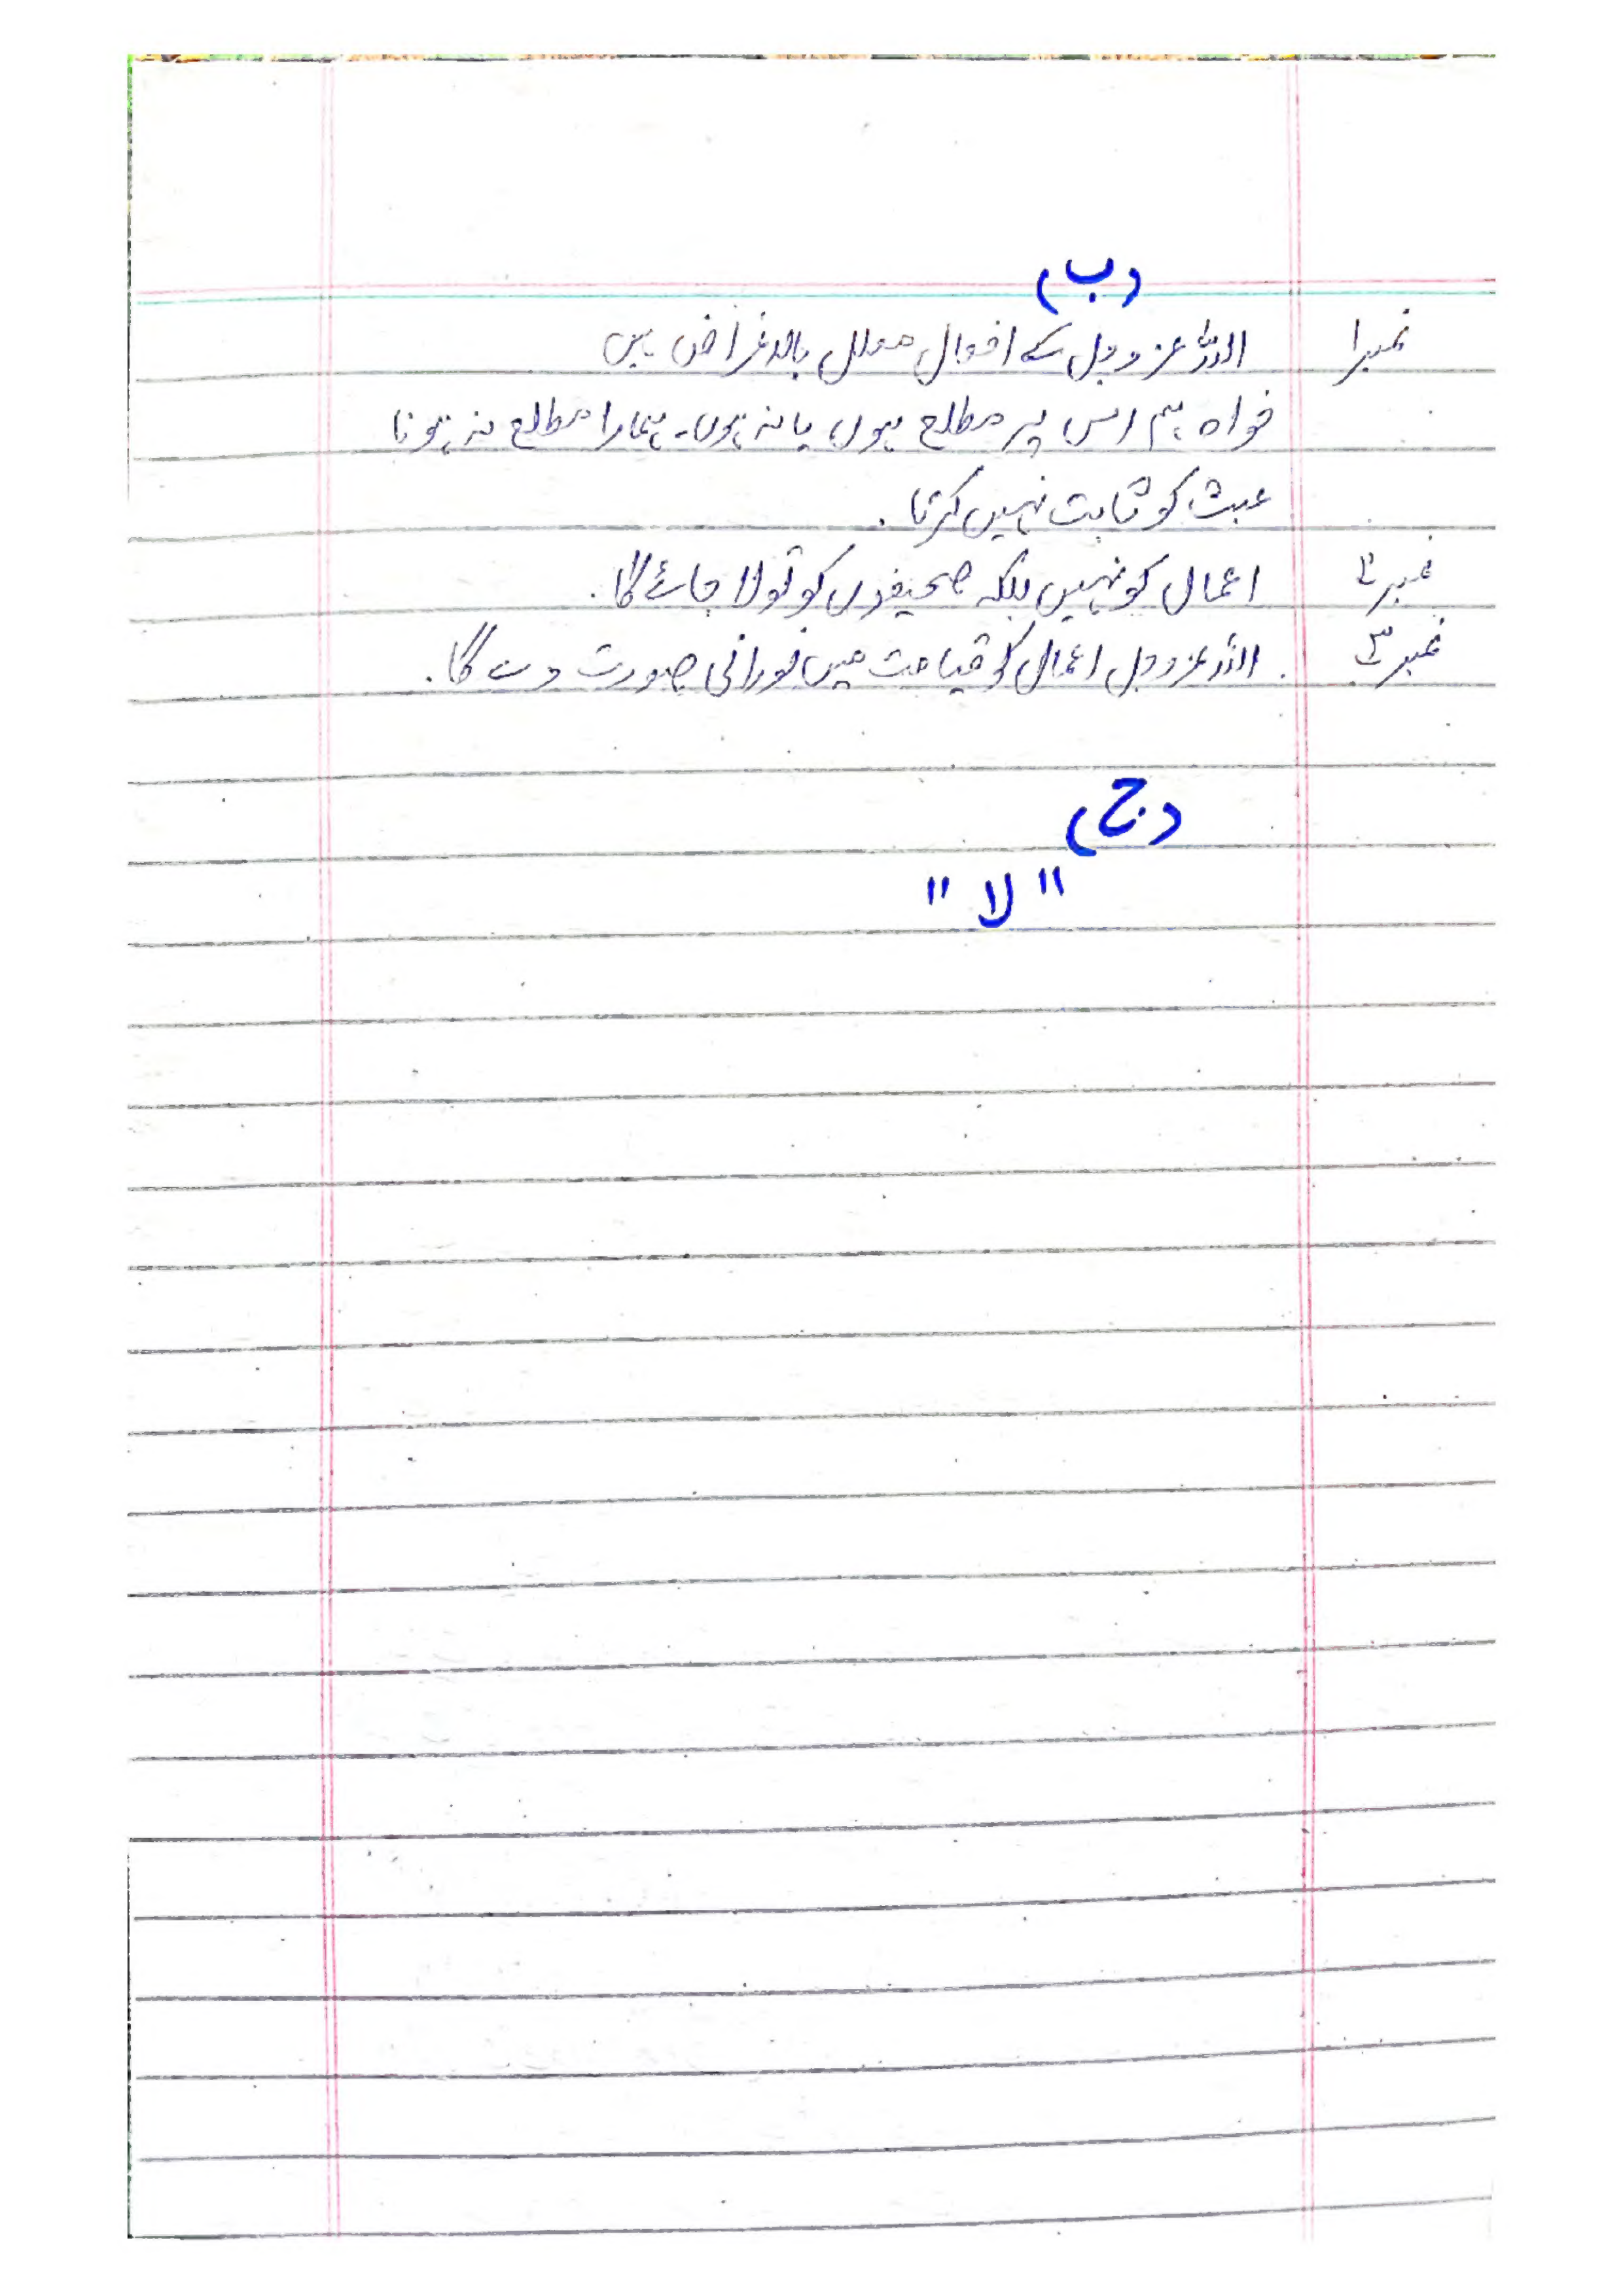 (ب)
نمبر ۱ اللہ عز وجل کے افعال معلل بالاغراض ہیں
خواہ ہم اس پر مطلع ہوں یا نہ ہوں۔ ہمارا مطلع نہ ہونا
عبث کو ثابت نہیں کرتا۔
نمبر ۲ اعمال کو نہیں بلکہ صحیفوں کو تولا جائے گا۔
نمبر ۳ اللہ عز وجل اعمال کو قیامت میں نورانی صورت دے گا۔
(ج)
"لا"